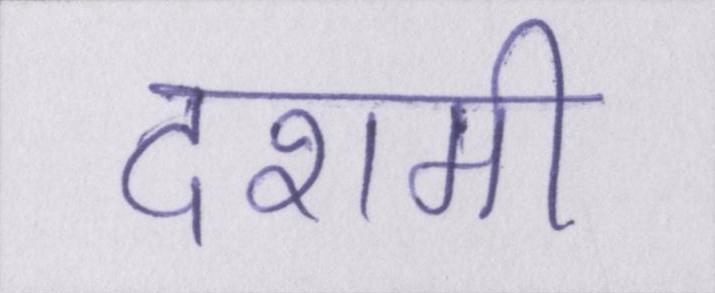 दशमी